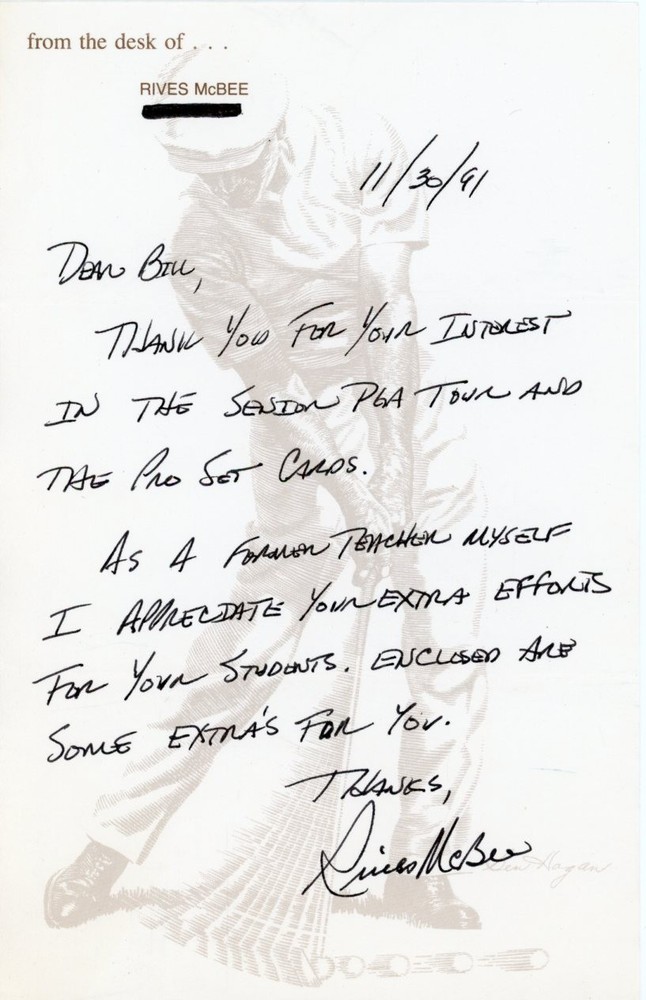 from the desk of . . .
RIVES McBEE
11/30/91
DEAR BILL,
THANK YOU FOR YOUR INTEREST
IN THE SENIOR PGA TOUR AND
THE PRO SET CARDS.
AS A FORMER TEACHER MYSELF
I APPRECIATE YOUR EXTRA EFFORTS
FOR YOUR STUDENTS. ENCLOSED ARE
SOME EXTRA'S FOR YOU.
THANKS,
Rives McBee
Ben Hogan